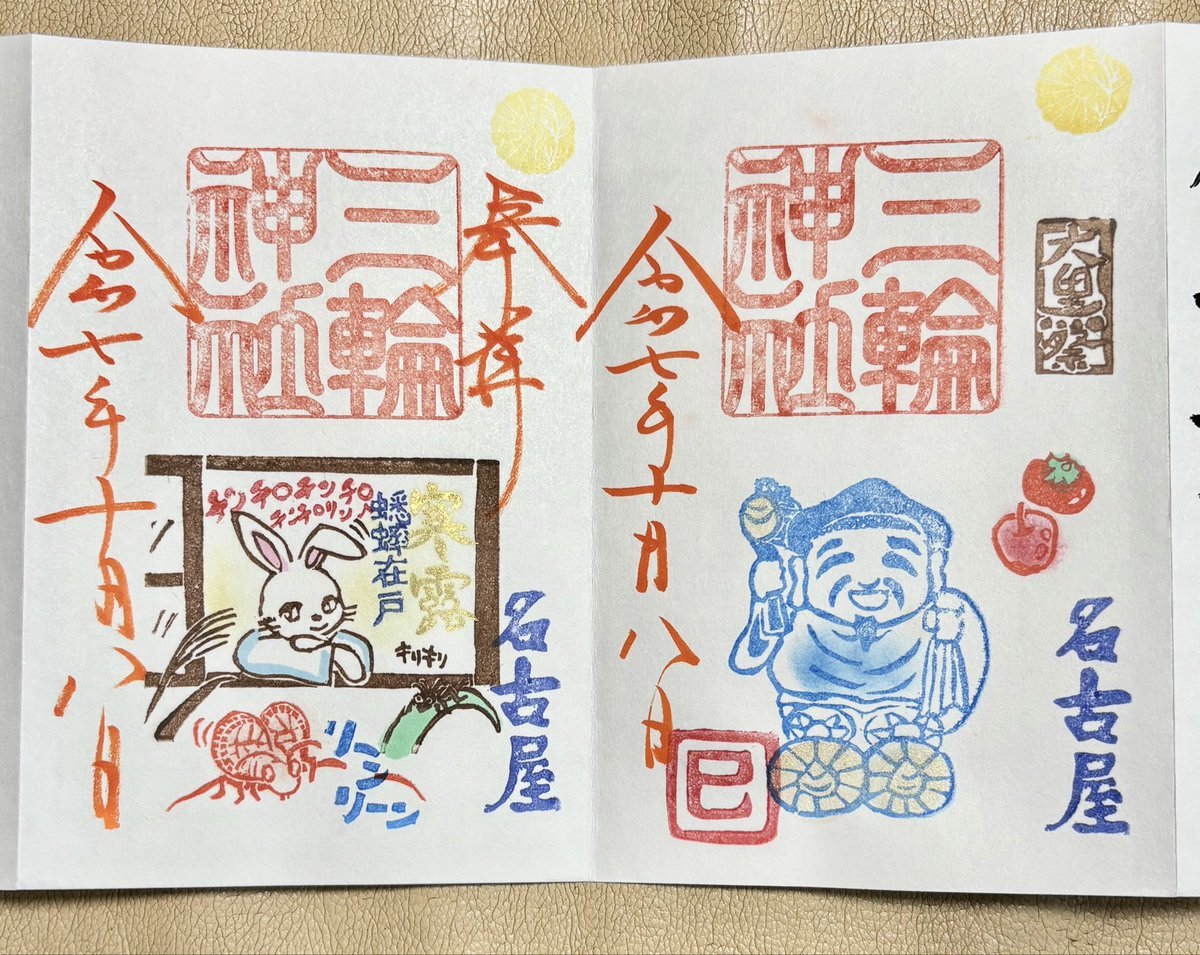 奉拝
三輪
神社
令和七年十月八日
寒露
蟋蟀在戸
チンチロチンチロ
チンチロリン♪
キリキリ
リーン
リーン
名古屋
大黒祭
三輪
神社
令和七年十月八日
巳
名古屋